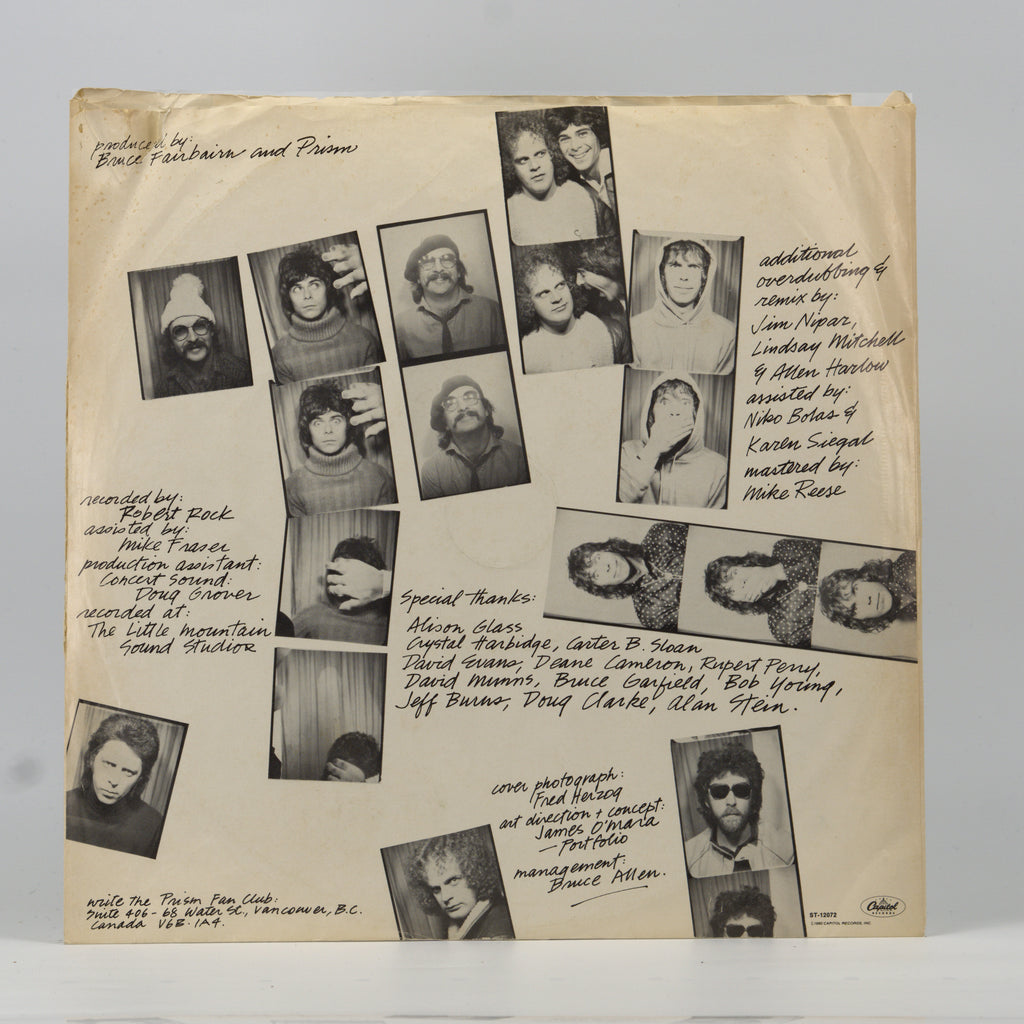 produced by:
Bruce Fairbairn and Prism
additional
overdubbing &
remix by:
Jim Nipar,
Lindsay Mitchell
& Allen Harlow
assisted by:
Niko Bolas &
Karen Siegal
mastered by:
Mike Reese
recorded by:
Robert Rock
assisted by:
Mike Fraser
production assistant:
Concert Sound:
Doug Grover
recorded at:
The Little Mountain
Sound Studios
Special Thanks:
Alison Glass
Crystal Harbidge, Carter B. Sloan
David Evans, Deane Cameron, Rupert Perry,
David Munns, Bruce Garfield, Bob Young,
Jeff Burns, Doug Clarke, Alan Stein.
cover photograph:
Fred Herzog
art direction + concept:
James O'Mara
— Portfolio
management:
Bruce Allen.
write the Prism Fan Club:
Suite 406 - 68 Water St., Vancouver, B.C.
Canada V6B-1A4.
ST-12072
©1980 CAPITOL RECORDS, INC.
Capitol
RECORDS